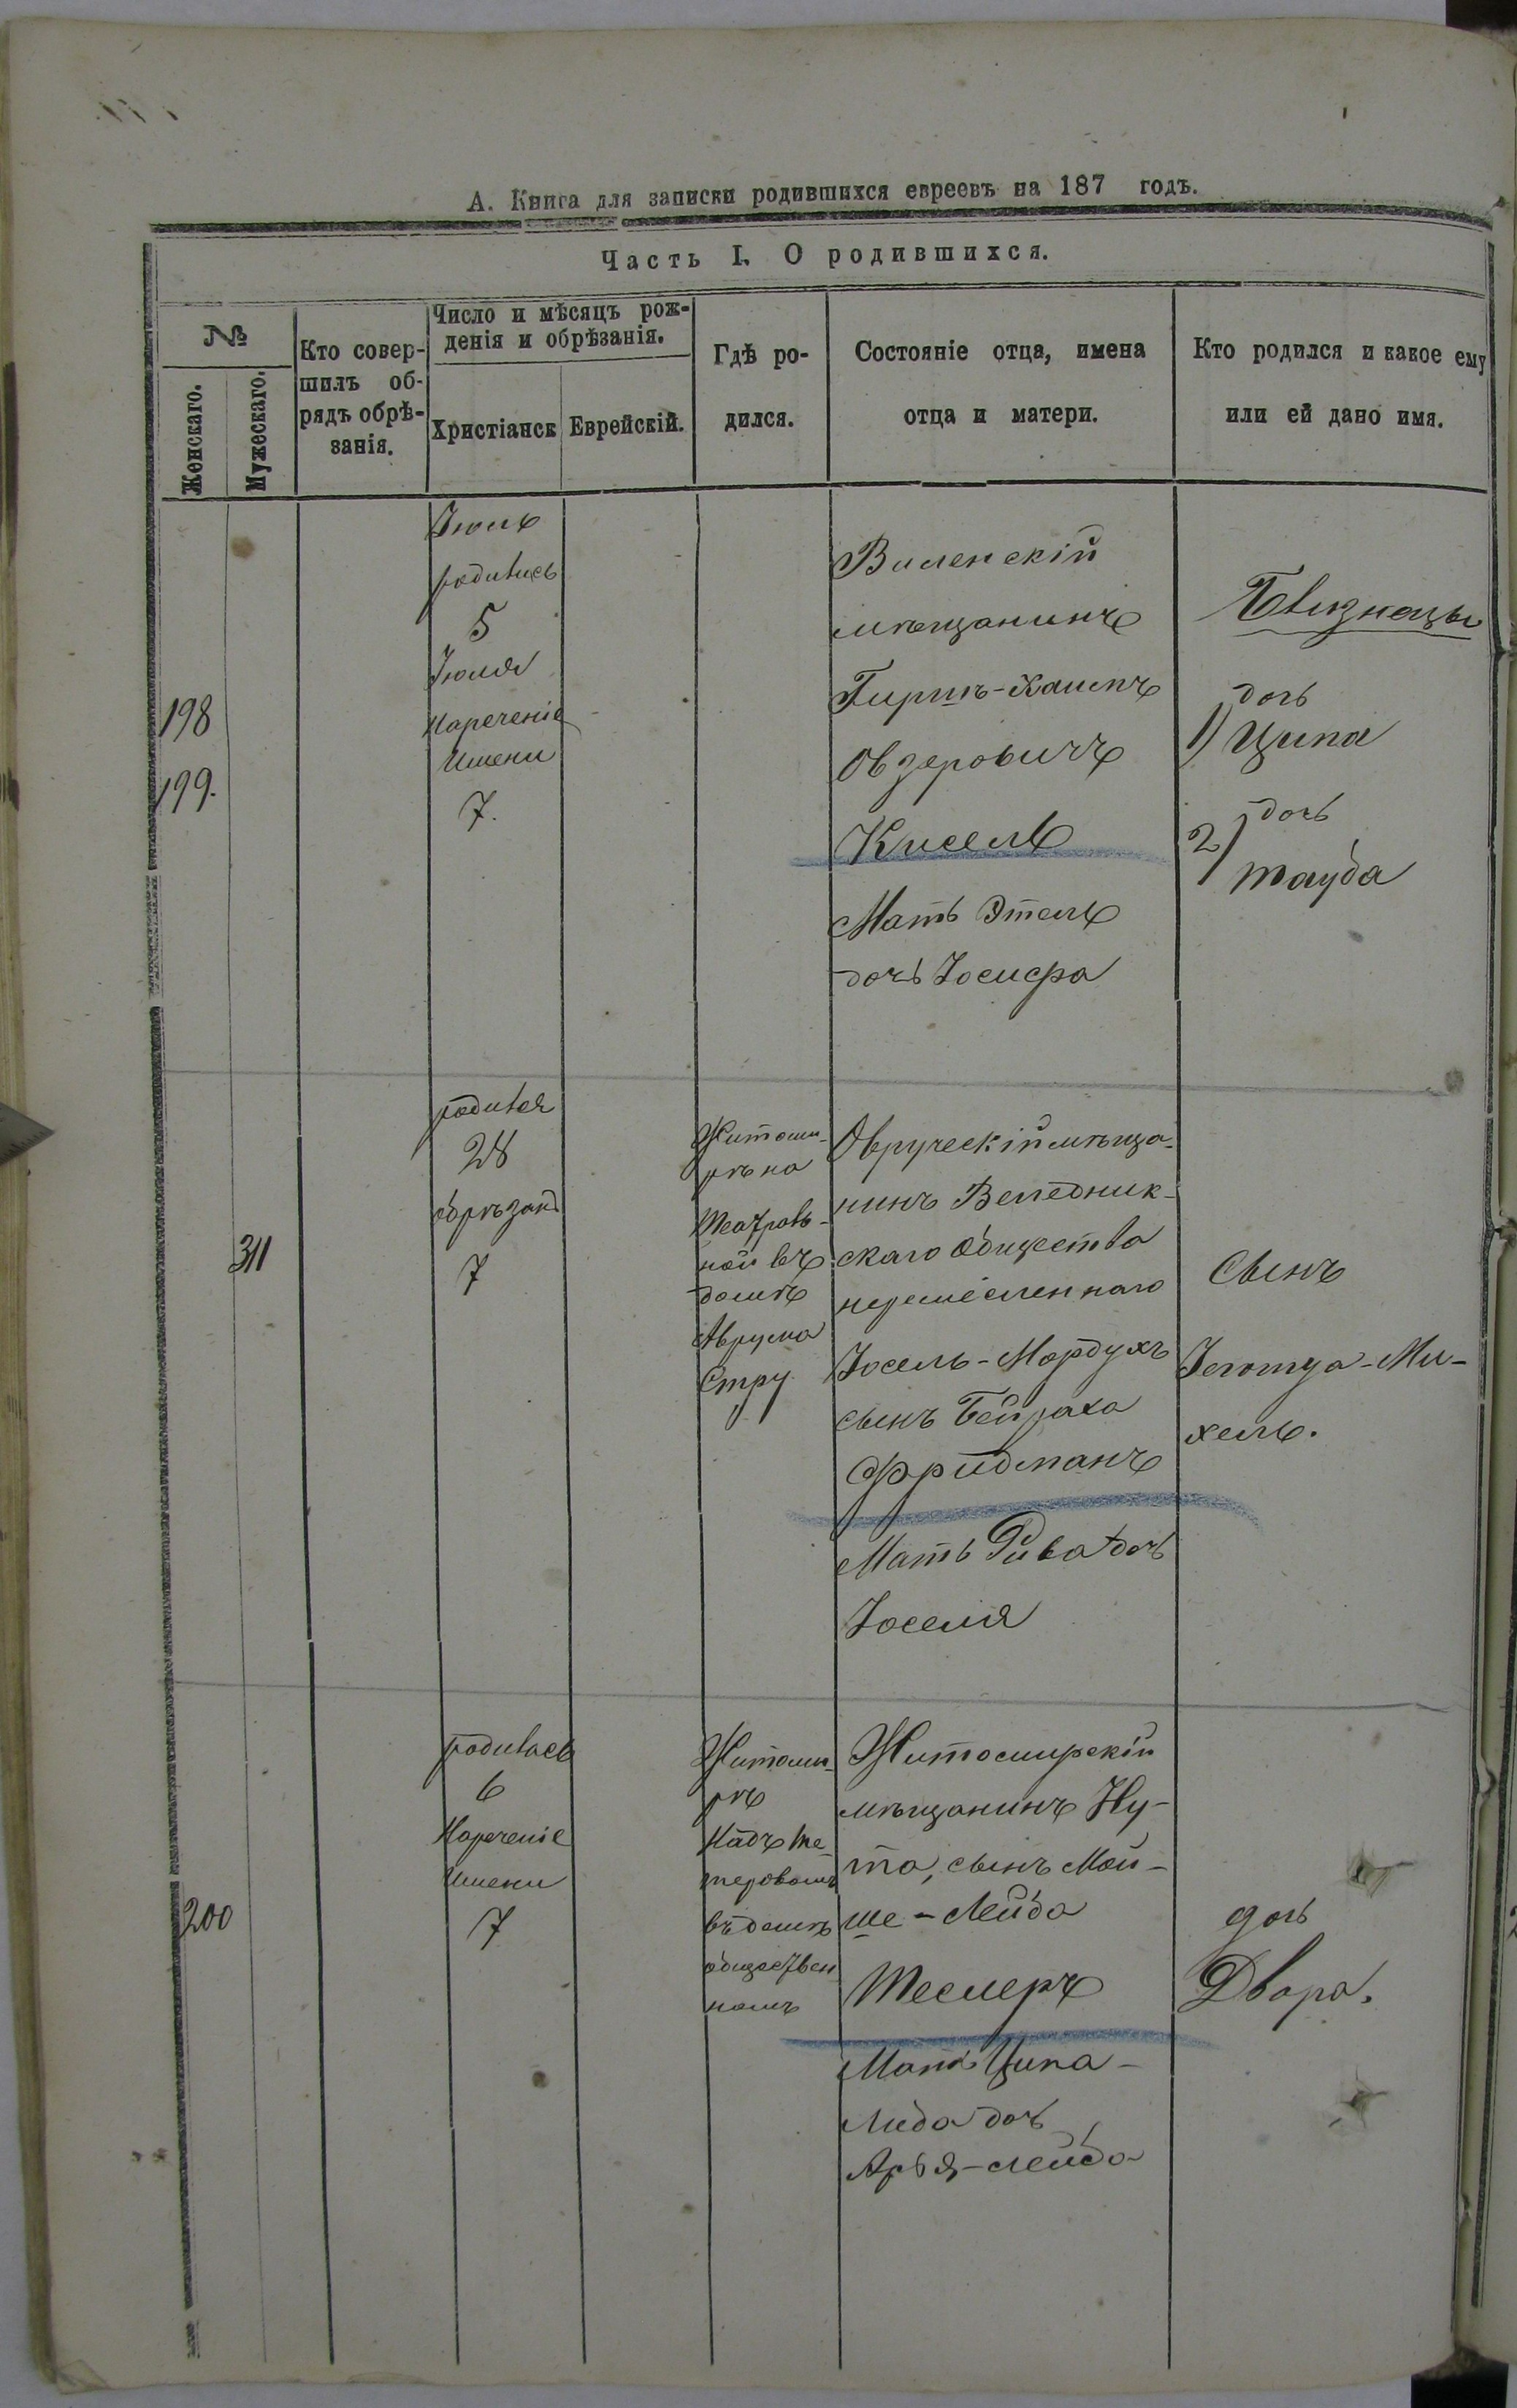 А. Книга для записки родившихся евреевъ на 187 годъ.
Часть I. О родившихся.
№
Женскаго.
Мужескаго.
Кто совер-
шилъ об-
рядъ обрѣ-
занія.
Число и мѣсяцъ рож-
денія и обрѣзанія.
Христіанск
Еврейскій.
Гдѣ ро-
дился.
Состояніе отца, имена
отца и матери.
Кто родился и какое ему
или ей дано имя.
198
199.
Іюль
родились
5
Іюля
Нареченіе
Имени
7.
Виленскій
мѣщанинъ
Гиршъ-Хаимъ
Овзеровичъ
Кисель
Мать Этель
дочь Іосифа
Близнецы
дочь
1) Ципа
дочь
2)
Тауба
311
родился
28
обрѣзанъ
7
Житоми-
рѣ на
Театраль-
ной въ
домѣ
Аврума
Овручскій мѣща-
нинъ Веледник-
скаго Общества
Іосель-Мордухъ
сынъ Бейраха
Фридманъ
Мать Рива дочь
Іоселя
Сынъ
Іегошуа-Ми-
хель.
200
родилась
6
Нареченіе
Имени
7
Житоми-
рѣ
Надъ Те-
теревомъ
въ домѣ
обществен
номъ
Житомирскій
мѣщанинъ Ну-
та, сынъ Мой-
ше-Лейба
Теслеръ
Мать Ципа-
Либа дочь
Арья-Лейба
дочь
Двора.